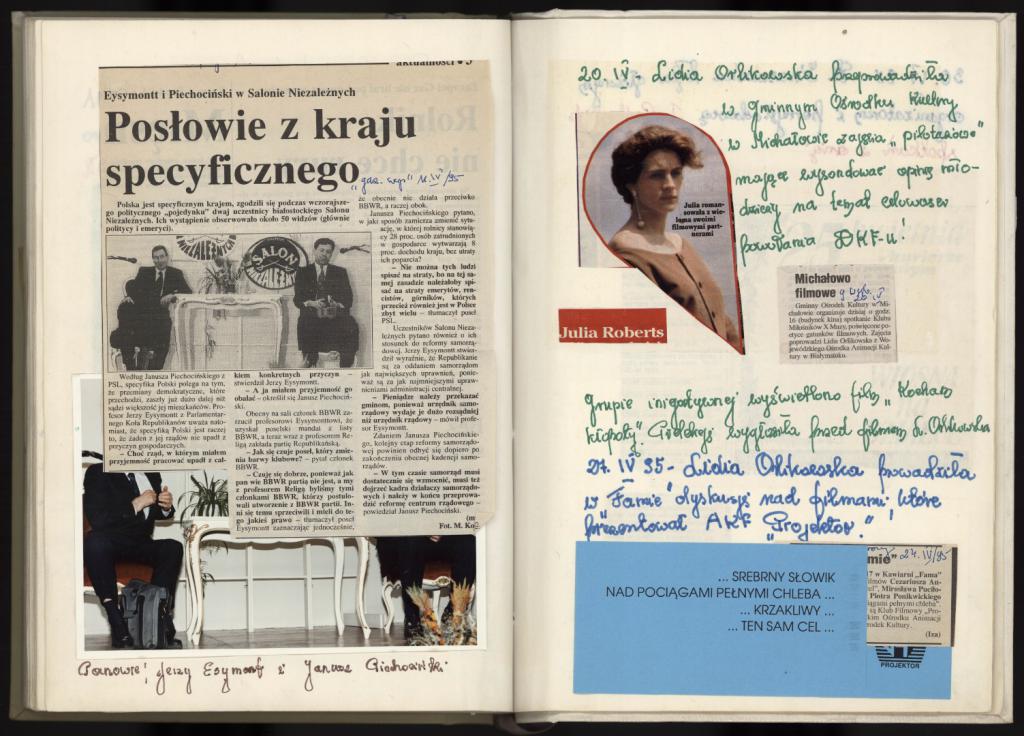 aktualności • 5
Eysymontt i Piechociński w Salonie Niezależnych
Posłowie z kraju
specyficznego
"gaz. wsp." IV/95
Polska jest specyficznym krajem, zgodzili się podczas wczorajsze-
go politycznego „pojedynku" dwaj uczestnicy białostockiego Salonu
Niezależnych. Ich wystąpienie obserwowało około 50 widzów (głównie
politycy i emeryci).
NIEZALEŻNYCH
SALON
NIEZALEŻNYCH
Według Janusza Piechocińskiego z
PSL, specyfika Polski polega na tym,
że przemiany demokratyczne, które
przechodzi, zaszły już dużo dalej niż
sądzi większość jej mieszkańców. Pro-
fesor Jerzy Eysymontt z Parlamentar-
nego Koła Republikanów uważa nato-
miast, że specyfika Polski jest raczej
to, że żaden z jej rządów nie upadł z
przyczyn gospodarczych.
– Choć rząd, w którym miałem
przyjemność pracować upadł z cał-
kiem konkretnych przyczyn –
stwierdził Jerzy Eysymontt.
– A ja miałem przyjemność go
obalać – określił się Janusz Piechoci-
ński.
Obecny na sali członek BBWR za-
rzucił profesorowi Eysymonttowi, że
uzyskał poselski mandat z listy
BBWR, a teraz wraz z profesorem Re-
ligą zakłada partię Republikanów.
– Jak się czuje poseł, który zmie-
nia barwy klubowe? – pytał członek
BBWR.
– Czuję się dobrze, ponieważ jak
pan wie BBWR partią nie jest, a my
z profesorem Religą byliśmy tymi
członkami BBWR, którzy postulo-
wali utworzenie z BBWR partii. In-
ni się temu sprzeciwili i mieli do te-
go jakieś prawo – tłumaczył poseł
Eysymontt zaznaczając jednocześnie,
że obecnie nie działa przeciwko
BBWR, a raczej obok.
Janusza Piechocińskiego pytano,
w jaki sposób zamierza zmienić sytu-
ację, w której rolnicy stanowią-
cy 28 proc. osób zatrudnionych
w gospodarce wytwarzają 8
proc. dochodu kraju, bez utraty
ich poparcia?
– Nie można tych ludzi
spisać na straty, bo na tej sa-
mej zasadzie należałoby spi-
sać na straty emerytów, ren-
cistów, górników, których
przecież również jest w Polsce
zbyt wielu – tłumaczył poseł
PSL.
Uczestników Salonu Nieza-
leżnych pytano również o ich
stosunek do reformy samorzą-
dowej. Jerzy Eysymontt stwier-
dził wyraźnie, że Republikanie
są za oddaniem samorządom
jak największych uprawnień, ponie-
waż są za jak najmniejszymi upraw-
nieniami administracji centralnej.
– Pieniądze należy przekazać
gminom, ponieważ urzędnik samo-
rządowy wydaje je dużo rozsądniej
niż urzędnik rządowy – mówił profe-
sor Eysymontt.
Zdaniem Janusza Piechocińskie-
go, kolejny etap reformy samorządo-
wej powinien odbyć się dopiero po
zakończeniu obecnej kadencji samo-
rządów.
– W tym czasie samorząd musi
dostatecznie się wzmocnić, musi też
dojrzeć kadra działaczy samorządo-
wych i należy w końcu przeprowa-
dzić reformę centrum rządowego –
powiedział Janusz Piechociński.
Fot. M. Ko
Panowie: Jerzy Eysymont i Janusz Piechociński
20. IV - Lidia Orlikowska przeprowadziła
w Gminnym Ośrodku Kultury
w Michałowie zajęcia „pilotażowe"
mające wysondować opinię mło-
dzieży na temat celowości
powołania DKF-u!
Julia roman-
sowała z wie-
loma swoimi
filmowymi part-
nerami
Julia Roberts
Michałowo
filmowe
Gminny Ośrodek Kultury w Mi-
chałowie organizuje dzisiaj o godz.
16 (budynek kina) spotkanie Klubu
Miłośników X Muzy, poświęcone po-
etyce gatunków filmowych. Zajęcia
poprowadzi Lidia Orlikowska z Wo-
jewódzkiego Ośrodka Animacji Kul-
tury w Białymstoku.
Grupie inicjatywnej wyświetlono film „Kocham
kłopoty". Prelekcję wygłosiła przed filmem L. Orlikowska
27. IV 95 - Lidia Orlikowska prowadziła
w "Famie" dyskusję nad filmami, które
prezentował AKF "Projektor".
... SREBRNY SŁOWIK
NAD POCIĄGAMI PEŁNYMI CHLEBA ...
... KRZAKLIWY ...
... TEN SAM CEL ...
27. IV/95
mie"
17 w Kawiarni „Fama"
filmów Cezariusza An-
el", Mirosława Puciło-
Piotra Ponikwickiego
iągami pełnymi chleba".
są Klub Filmowy „Pro-
kim Ośrodku Animacji
rodek Kultury.
(Iza)
PROJEKTOR